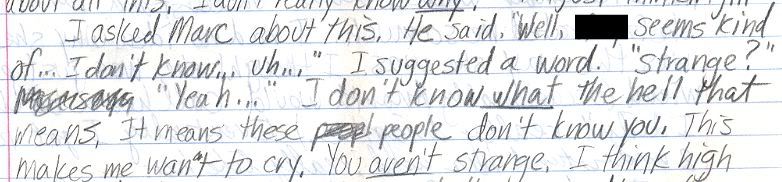 about all this. I don't really know why.
I asked Marc about this. He said, "Well, seems kind
of... I don't know... uh..." I suggested a word. "Strange?"
"Yeah..." I don't know what the hell that
means. It means these people don't know you. This
makes me want to cry. You aren't strange. I think high